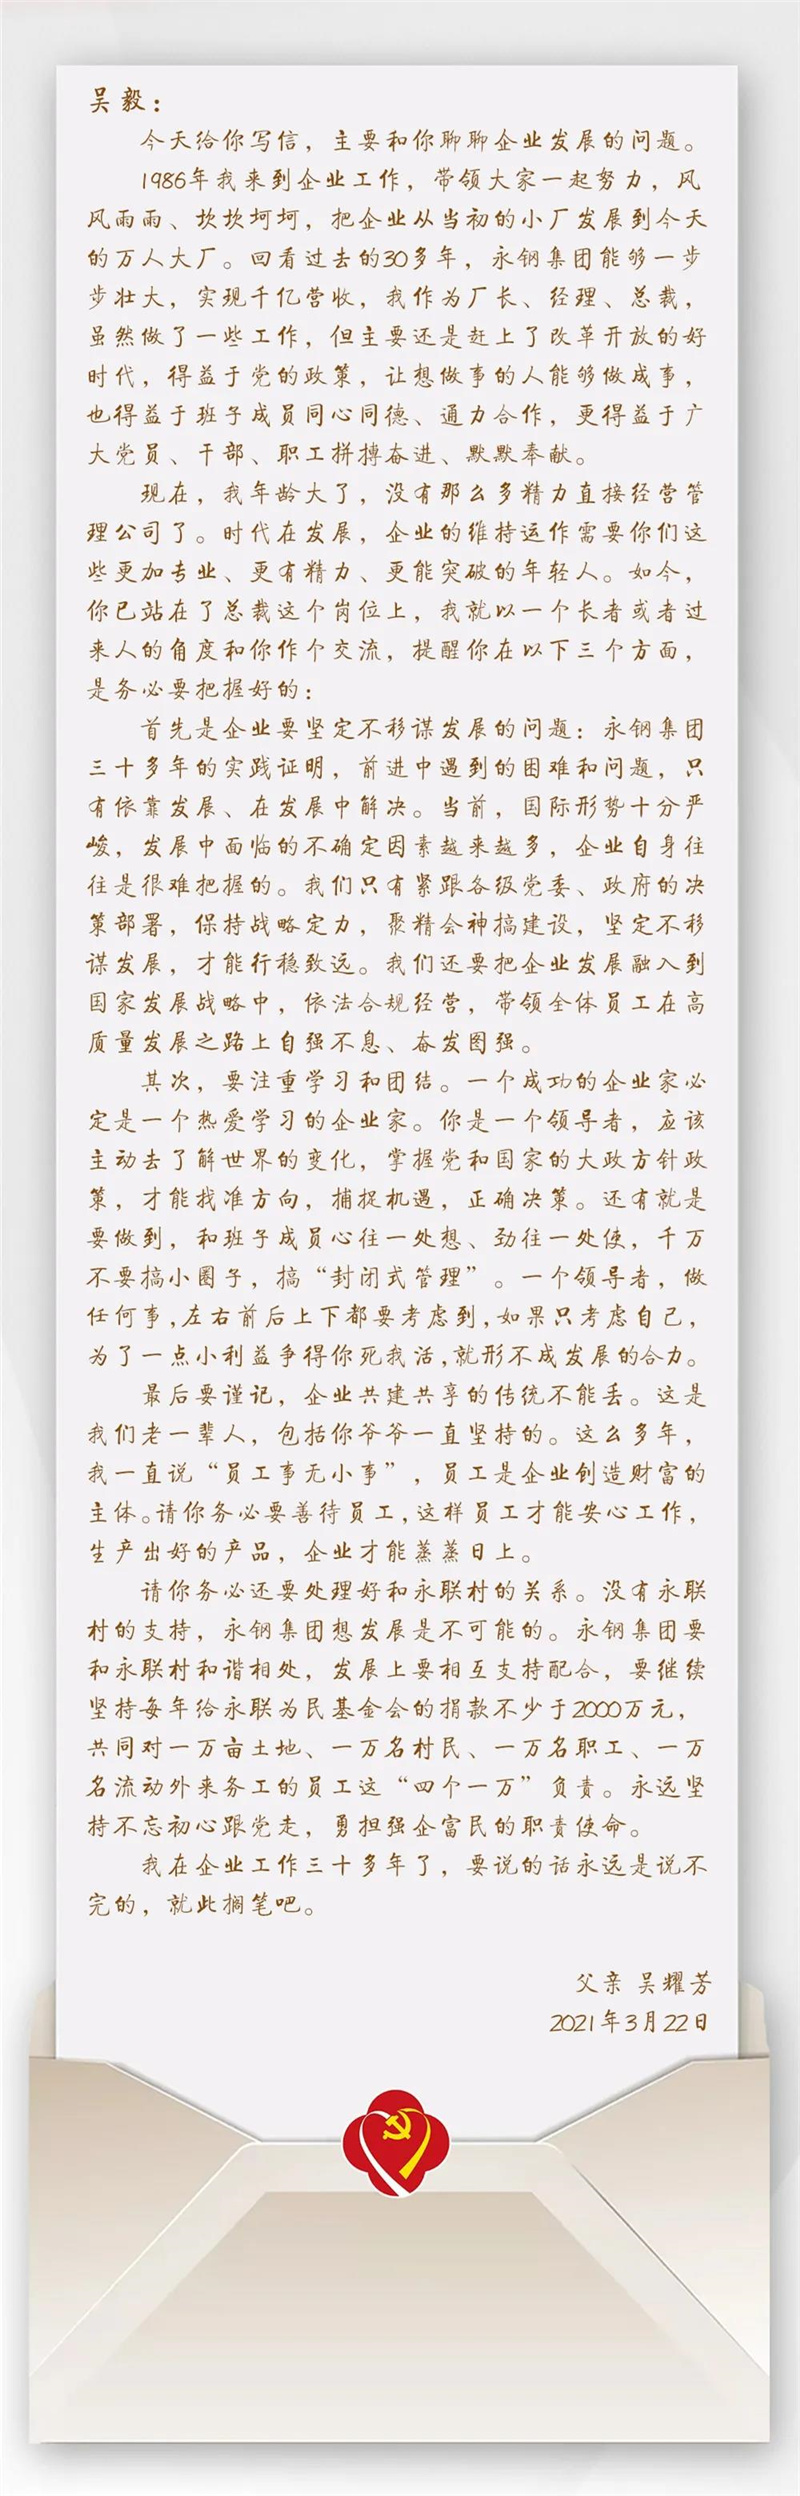 吴毅：
今天给你写信，主要和你聊聊企业发展的问题。
1986年我来到企业工作，带领大家一起努力，风
风雨雨、坎坎坷坷，把企业从当初的小厂发展到今天
的万人大厂。回看过去的30多年，永钢集团能够一步
步壮大，实现千亿营收，我作为厂长、经理、总裁，
虽然做了一些工作，但主要还是赶上了改革开放的好
时代，得益于党的政策，让想做事的人能够做成事，
也得益于班子成员同心同德、通力合作，更得益于广
大党员、干部、职工拼搏奋进、默默奉献。
现在，我年龄大了，没有那么多精力直接经营管
理公司了。时代在发展，企业的维持运作需要你们这
些更加专业、更有精力、更能突破的年轻人。如今，
你已站在了总裁这个岗位上，我就以一个长者或者过
来人的角度和你作个交流，提醒你在以下三个方面，
是务必要把握好的：
首先是企业要坚定不移谋发展的问题：永钢集团
三十多年的实践证明，前进中遇到的困难和问题，只
有依靠发展、在发展中解决。当前，国际形势十分严
峻，发展中面临的不确定因素越来越多，企业自身往
往是很难把握的。我们只有紧跟各级党委、政府的决
策部署，保持战略定力，聚精会神搞建设，坚定不移
谋发展，才能行稳致远。我们还要把企业发展融入到
国家发展战略中，依法合规经营，带领全体员工在高
质量发展之路上自强不息、奋发图强。
其次，要注重学习和团结。一个成功的企业家必
定是一个热爱学习的企业家。你是一个领导者，应该
主动去了解世界的变化，掌握党和国家的大政方针政
策，才能找准方向，捕捉机遇，正确决策。还有就是
要做到，和班子成员心往一处想、劲往一处使，千万
不要搞小圈子，搞“封闭式管理”。一个领导者，做
任何事，左右前后上下都要考虑到，如果只考虑自己，
为了一点小利益争得你死我活，就形不成发展的合力。
最后要谨记，企业共建共享的传统不能丢。这是
我们老一辈人，包括你爷爷一直坚持的。这么多年，
我一直说“员工事无小事”，员工是企业创造财富的
主体。请你务必要善待员工，这样员工才能安心工作，
生产出好的产品，企业才能蒸蒸日上。
请你务必还要处理好和永联村的关系。没有永联
村的支持，永钢集团想发展是不可能的。永钢集团要
和永联村和谐相处，发展上要相互支持配合，要继续
坚持每年给永联为民基金会的捐款不少于2000万元，
共同对一万亩土地、一万名村民、一万名职工、一万
名流动外来务工的员工这“四个一万”负责。永远坚
持不忘初心跟党走，勇担强企富民的职责使命。
我在企业工作三十多年了，要说的话永远是说不
完的，就此搁笔吧。
父亲 吴耀芳
2021年3月22日